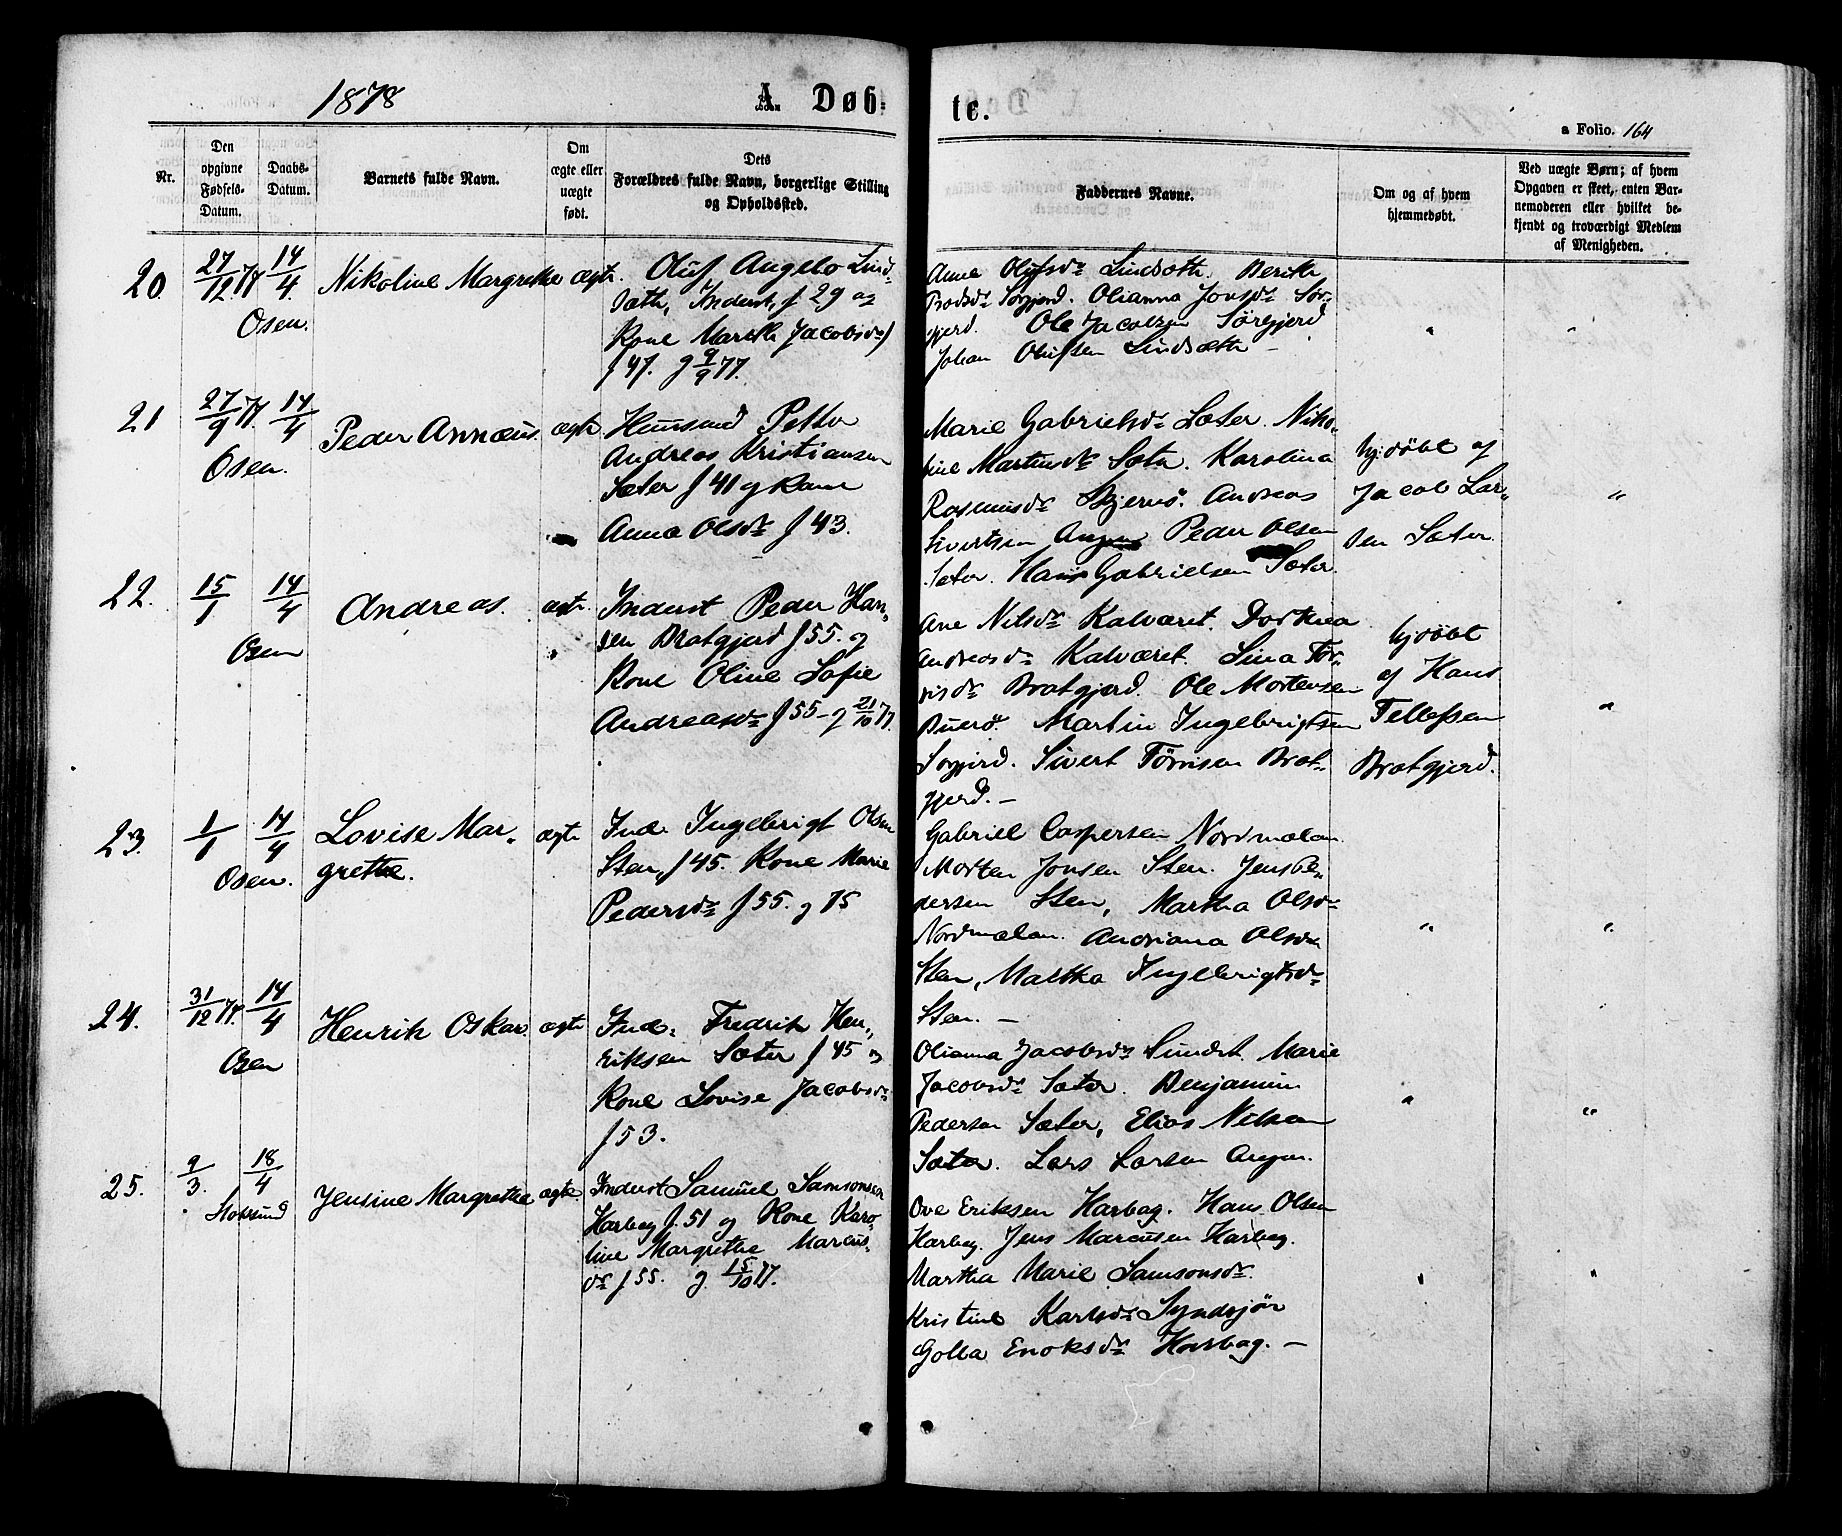 1878
A. Døb-
te.
a Folio. 164
Nr.
Den
opgivne
Fødsels-
Datum.
Daabs-
Datum.
Barnets fulde Navn.
Om
ægte eller
uægte
født.
Dets
Forældres fulde Navn, borgerlige Stilling
og Opholdssted.
Faddernes Navne.
Om og af hvem
hjemmedøbt.
Ved uægte Børn; af hvem
Opgaven er skeet, enten Bar-
nemoderen eller hvilket be-
kjendt og troværdigt Medlem
af Menigheden.
20.
27/12 77.
14/4.
Osen.
Nikoline Margrethe
ægte.
Oluf Angelo Lind-
sæth, Inderst, f 29 og
Kone Marith Jacobsdr
f 47. g 9/9 77.
Anne Olufsdr Lindsæth. Berith
Sørgjerd. Olianna Jonsdr Sør-
gjerd. Ole Jacobsen Sørgjerd
Johan Olufsen Lindsæth –
"
"
21
27/9 77.
14/4
Osen.
Peder Annæus.
ægte
Huusmd Petter
Andreas Kristiansen
Sæter f 41 og Kone
Anna Olsdr f 43.
Marie Gabrielsdr Sæter. Niko-
line Martensdr Sæter. Karolina
Rasmusdr Skjervö. Andreas
Sivertsen Angen Peder Olsen
Sæter. Hans Gabrielsen Sæter.
hjdöbt af
Jacob Lar-
sen Sæter.
"
22.
15/1
14/4
Osen
Andreas.
ægte.
Inderst Peder Han-
sen Bratgjerd f 55. og
Kone Oline Sofie
Andreasdr f 55 – g 21/10 77.
Ane Nilsdr Kalværet. Dorthea
Andreasdr Kalværet. Lina Tör-
risdr Bratgjerd. Ole Mortensen
Buerö. Martin Ingebrigtsen
Sørgjerd. Sivert Törrisen Brat-
gjerd. –
hjdöbt
af Hans
Tellefsen
Bratgjerd.
"
23.
1/1
14/4
Osen.
Lovise Mar-
grethe.
ægte
Ind. Ingebrigt Olsen
Sten, f 45. Kone Marie
Pedersdr f 55. g 75
Gabriel Caspersen Nordmelan
Morten Jonsen Sten. Jens Pe-
dersen Sten, Martha Olsdr
Nordmelan. Andriana Olsdr
Sten, Martha Ingebrigtsdr
Sten. –
"
"
24.
31/12 77.
14/4
Osen
Henrik Oskar.
ægte
Ind. Fredrik Hen-
riksen Sæter f 45 og
Kone Lovise Jacobsdr
f 53.
Olianna Jacobsdr Sundet. Marie
Jacobsdr Sæter. Benjamin
Pedersen Sæter, Elias Nilsen
Sæter. Lars Larsen Angen.
"
"
25.
9/3.
18/4
Stoksund
Jensine Margrethe
ægte
Inderst Samuel Samsonsen
Harbag f. 51 og Kone Karo-
line Margrethe Marcus-
dr f 55. g. 15/10 77.
Ove Eriksen Harbag. Hans Olsen
Harbag. Jens Marcusen Harbag.
Martha Marie Samsonsdr.
Kristine Karlsdr Syndsjör
Golla Enoksdr Harbag. –
"
"